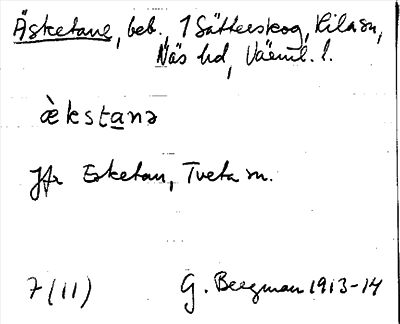 Äsketane, beb., 1 Sätterskog, Kila sn,
Näs hd, Värml. l.
æ̀kstanə
Jfr Esketan, Tveta sn.
7 (11) G. Bergman 1913-14